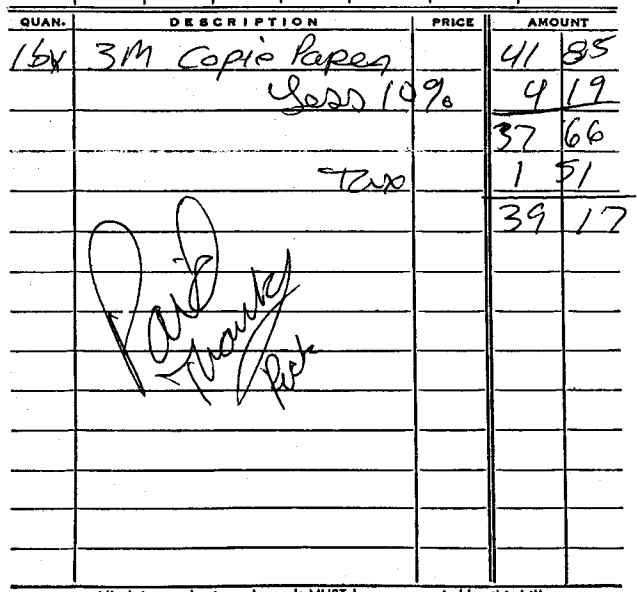 QUAN. DESCRIPTION PRICE AMOUNT
1 bx 3M Copie Paper 41 85
Less 10% 4 19
37 66
Tax 1 51
39 17
Paid
Thanks